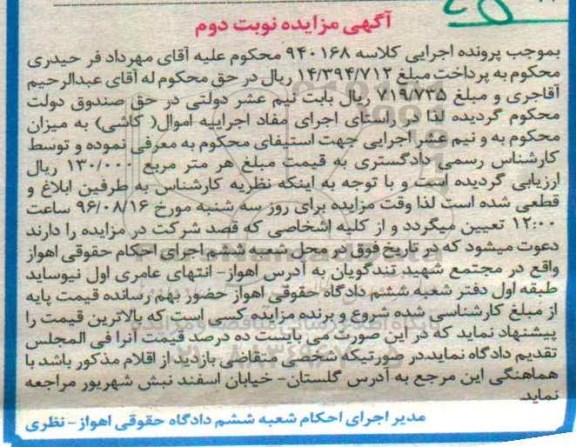 آگهی مزایده نوبت دوم
بموجب پرونده اجرایی کلاسه ۹۴۰۱۶۸ محکوم علیه آقای مهرداد فر حیدری
محکوم به پرداخت مبلغ ۱۴/۳۹۴/۷۱۲ ریال در حق محکوم له آقای عبدالرحیم
آقاجری و مبلغ ۷۱۹/۷۳۵ ریال بابت نیم عشر دولتی در حق صندوق دولت
محکوم گردیده لذا در راستای اجرای مفاد اجراییه اموال( کاشی) به میزان
محکوم به و نیم عشر اجرایی جهت استیفای محکوم به معرفی نموده و توسط
کارشناس رسمی دادگستری به قیمت مبلغ هر متر مربع ۱۳۰/۰۰۰ ریال
ارزیابی گردیده است و با توجه به اینکه نظریه کارشناس به طرفین ابلاغ و
قطعی شده است لذا وقت مزایده برای روز سه شنبه مورخ ۹۶/۰۸/۱۶ ساعت
۱۲:۰۰ تعیین میگردد و از کلیه اشخاصی که قصد شرکت در مزایده را دارند
دعوت میشود که در تاریخ فوق در محل شعبه ششم اجرای احکام حقوقی اهواز
واقع در مجتمع شهید تندگویان به آدرس اهواز- انتهای عامری اول نیوساید
طبقه اول دفتر شعبه ششم دادگاه حقوقی اهواز حضور بهم رسانده قیمت پایه
از مبلغ کارشناسی شده شروع و برنده مزایده کسی است که بالاترین قیمت را
پیشنهاد نماید که در این صورت می بایست ده درصد قیمت آنرا فی المجلس
تقدیم دادگاه نماید.در صورتیکه شخصی متقاضی بازدید از اقلام مذکور باشد با
هماهنگی این مرجع به آدرس گلستان- خیابان اسفند نبش شهریور مراجعه
نماید.
مدیر اجرای احکام شعبه ششم دادگاه حقوقی اهواز - نظری